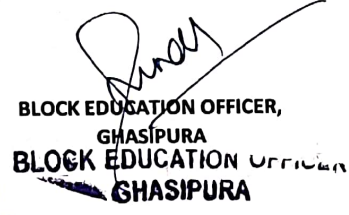 BLOCK EDUCATION OFFICER,
GHASIPURA
BLOCK EDUCATION
GHASIPURA